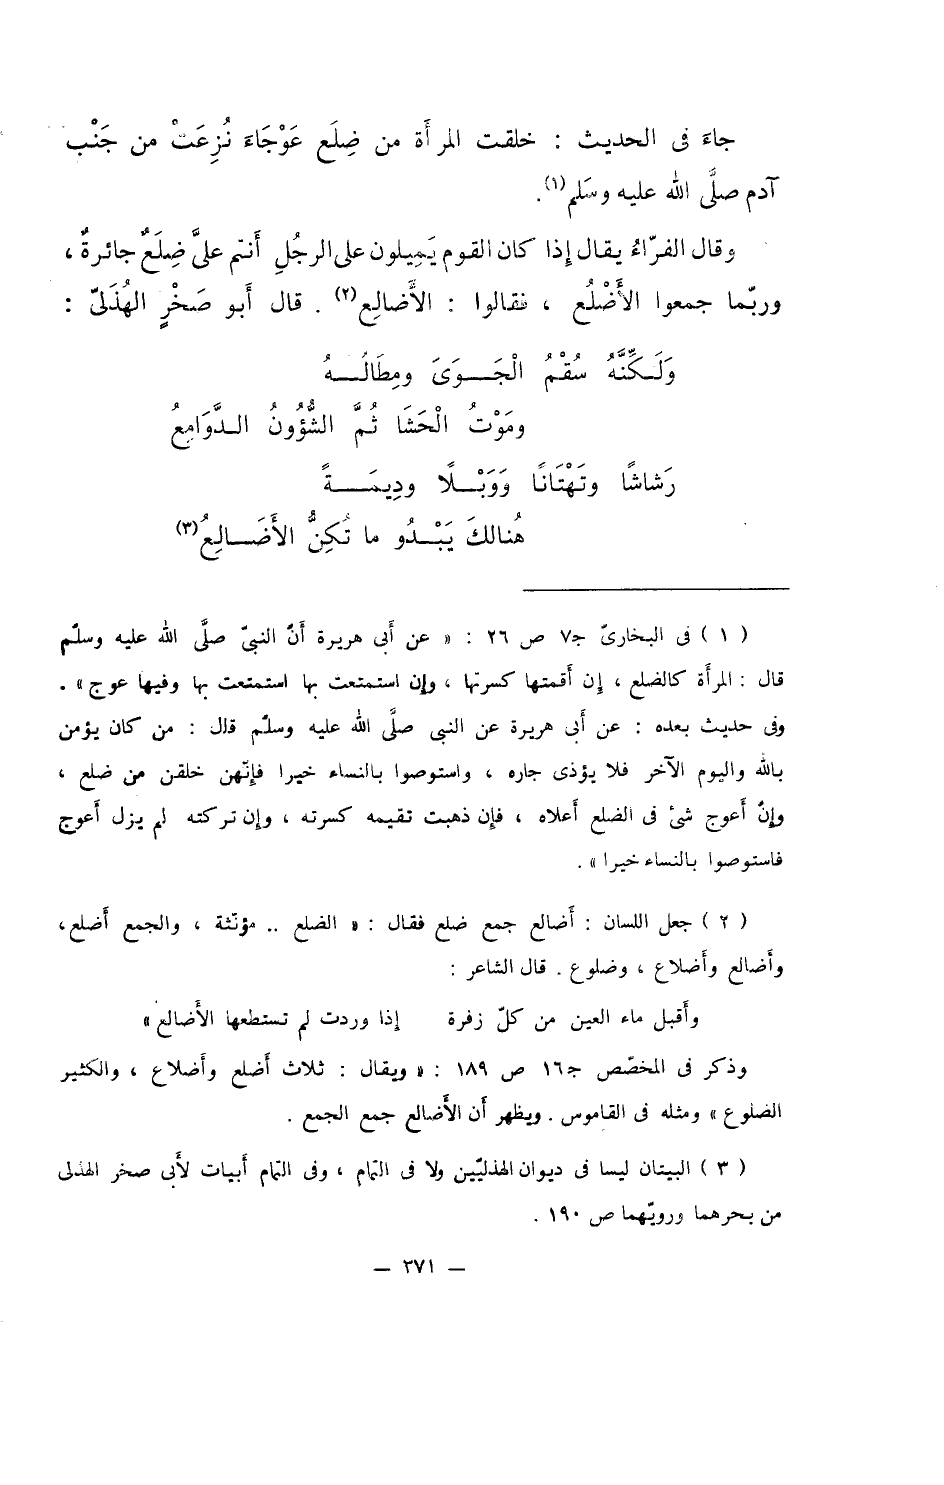 جاءَ فى الحديث : خلقت المرأَة من ضِلَع عَوْجَاءَ نُزِعَتْ من جَنْب
آدم صلَّى الله عليه وسَلم(١).
وقال الفرّاءُ يقال إذا كان القوم يَمِيلون على الرجُلِ أَنتم علىَّ ضِلَعٌ جائرةٌ ،
وربّما جمعوا الأَضْلُع ، فقالوا : الأَضالِع(٢) . قال أَبو صَخْرٍ الهُذَلىّ :
وَلَـكِنَّهُ سُقْمُ الْجَـــوَىَ ومِطَالُـــهُ
ومَوْتُ الْحَشَا ثُمَّ الشُّؤُونُ الـدَّوَامِعُ
رَشاشًا وتَهْتَانًا وَوَبْـــلًا ودِيمَـــــةً
هُنالكَ يَبْـــدُو ما تُكِنُّ الأَضَـــالِعُ(٣)
( ١ ) فى البخارىّ ج٧ ص ٢٦ : « عن أَبى هريرة أَنّ النبىّ صلَّى الله عليه وسلّم
قال : المرأَة كالضلع ، إن أَقمتها كسرتها ، وإن استمتعت بها استمتعت بها وفيها عوج » .
وفى حديث بعده : عن أَبى هريرة عن النبى صلَّى الله عليه وسلّم قال : من كان يؤمن
بالله واليوم الآخر فلا يؤذى جاره ، واستوصوا بالنساء خيرا فإنّهن خلقن من ضلع ،
وإنّ أَعوج شئ فى الضلع أَعلاه ، فإن ذهبت تقيمه كسرته ، وإن تركته لم يزل أَعوج
فاستوصوا بالنساء خيرا » .
( ٢ ) جعل اللسان : أَضالع جمع ضلع فقال : « الضلع .. مؤنّثة ، والجمع أَضلع،
وأَضالع وأَضلاع ، وضلوع . قال الشاعر :
وأَقبل ماء العين من كلّ زفرة إذا وردت لم تستطعها الأَضالع »
وذكر فى المخصّص ج١٦ ص ١٨٩ : « ويقال : ثلاث أَضلع وأَضلاع ، والكثير
الضلوع » ومثله فى القاموس . ويظهر أَن الأَضالع جمع الجمع .
( ٣ ) البيتان ليسا فى ديوان الهذليّين ولا فى التمام ، وفى التمام أَبيات لأَبى صخر الهذلى
من بحرهما ورويّهما ص ١٩٠ .
— ٢٧١ —